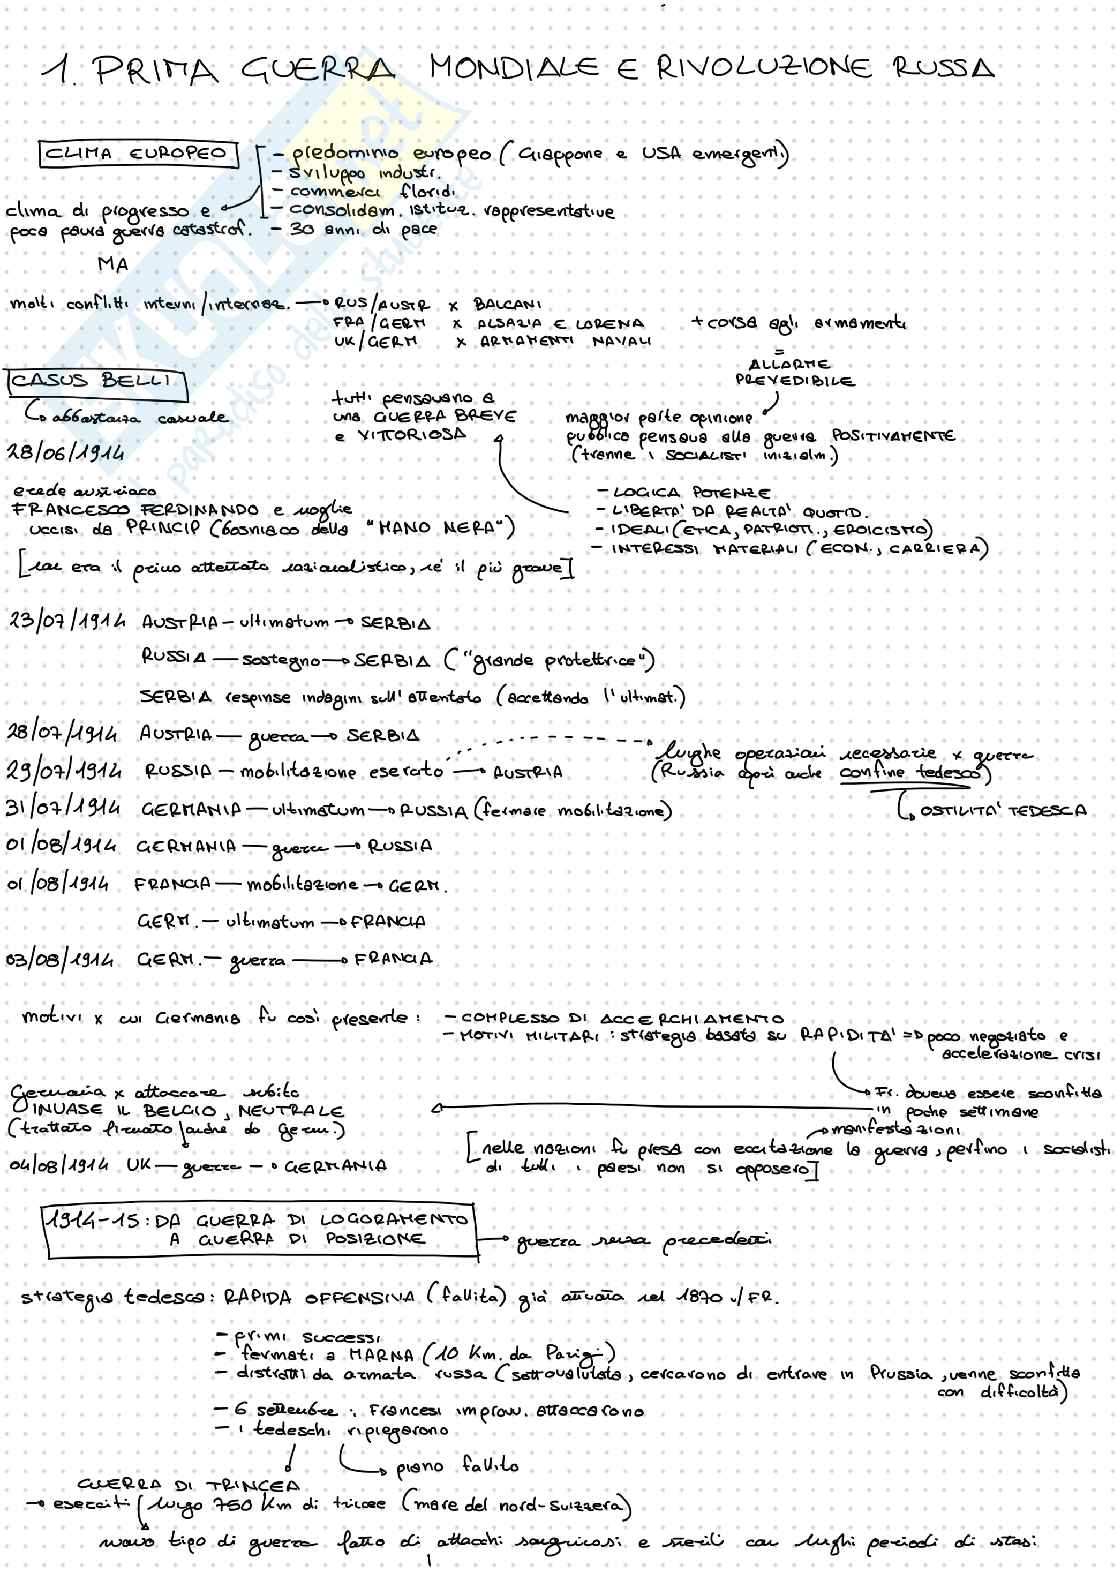 1. PRIMA GUERRA MONDIALE E RIVOLUZIONE RUSSA
CLIMA EUROPEO
- predominio europeo (Giappone e USA emergenti)
- sviluppo industr.
- commerci floridi
- consolidam. istituz. rappresentative
- 30 anni di pace
clima di progresso e
poca paura guerra catastrof.
MA
molti conflitti interni/internaz. → RUS/AUSTR x BALCANI
FRA/GERM x ALSAZIA E LORENA
UK/GERM x ARMAMENTI NAVALI
+ corsa agli armamenti
=
ALLARME
PREVEDIBILE
CASUS BELLI
↳ abbastanza casuale
tutti pensavano a
una GUERRA BREVE
e VITTORIOSA
maggior parte opinione
pubblica pensava alla guerra POSITIVAMENTE
(tranne i SOCIALISTI inizialm.)
28/06/1914
erede austriaco
FRANCESCO FERDINANDO e moglie
uccisi da PRINCIP (bosniaco della "MANO NERA")
- LOGICA POTENZE
- LIBERTA' DA REALTA' QUOTID.
- IDEALI (ETICA, PATRIOTI., EROICISMO)
- INTERESSI MATERIALI (ECON., CARRIERA)
[non era il primo attentato nazionalistico, né il più grave]
23/07/1914 AUSTRIA - ultimatum → SERBIA
RUSSIA — sostegno → SERBIA ("grande protettrice")
SERBIA respinse indagini sull'attentato (accettando l'ultimat.)
28/07/1914 AUSTRIA — guerra → SERBIA
29/07/1914 RUSSIA - mobilitazione esercito → AUSTRIA
lunghe operazioni necessarie x guerra
(Russia aprì anche confine tedesco)
↳ OSTILITA' TEDESCA
31/07/1914 GERMANIA — ultimatum → RUSSIA (fermare mobilitazione)
01/08/1914 GERMANIA — guerra → RUSSIA
01/08/1914 FRANCIA — mobilitazione → GERM.
GERM. — ultimatum → FRANCIA
03/08/1914 GERM. - guerra → FRANCIA
motivi x cui Germania fu così presente: - COMPLESSO DI ACCERCHIAMENTO
- MOTIVI MILITARI: strategia basata su RAPIDITA' => poco negoziato e
accelerazione crisi
→ Fr. doveva essere sconfitta
in poche settimane
Germania x attaccare subito
INVASE IL BELGIO, NEUTRALE
(trattato firmato anche da Germ.)
04/08/1914 UK — guerra → GERMANIA
→ manifestazioni
[nelle nazioni fu presa con eccitazione la guerra, perfino i socialisti
di tutti i paesi non si opposero]
1914-15: DA GUERRA DI LOGORAMENTO
A GUERRA DI POSIZIONE
→ guerra senza precedenti
strategia tedesca: RAPIDA OFFENSIVA (fallita) già attuata nel 1870 v/FR.
- primi successi
- fermati a MARNA (10 Km. da Parigi)
- distratti da armata russa (sottovalutata, cercarono di entrare in Prussia, venne sconfitta
con difficoltà)
- 6 settembre: Francesi improvv. attaccarono
- i tedeschi ripiegarono
→ piano fallito
GUERRA DI TRINCEA
→ eserciti lungo 750 Km di trincee (mare del nord-Svizzera)
nuovo tipo di guerra fatto di attacchi sanguinosi e sterili con lunghi periodi di stasi